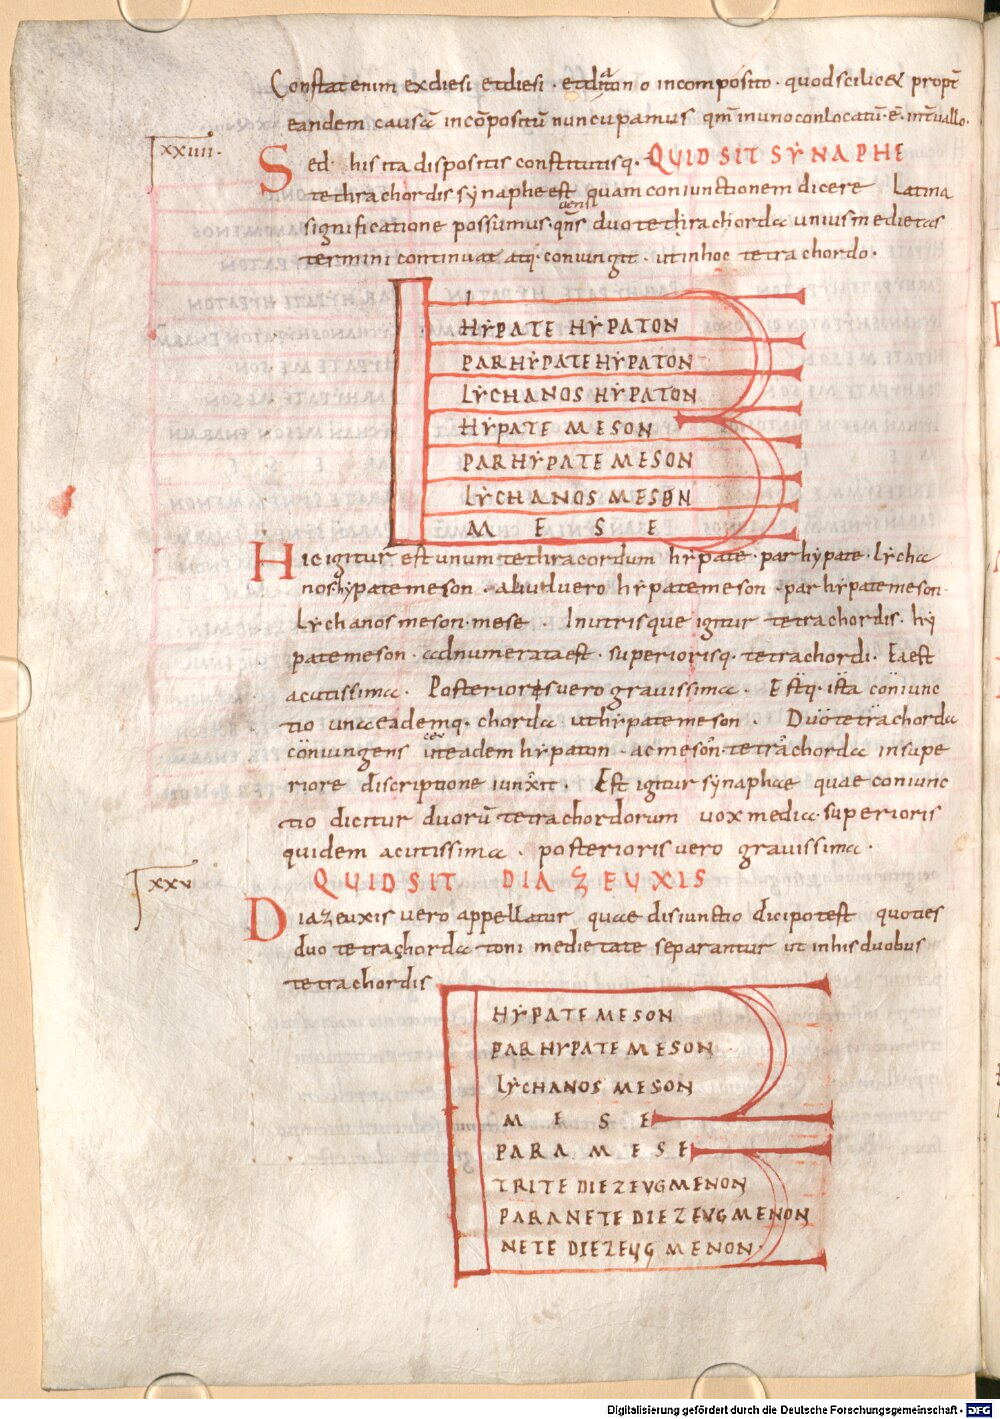 Constat enim ex diesi et diesi · et ditono incomposito · quod scilicet propt̄
eandem causā incōpositū nuncupamus qm̄ in uno conlocatū · ē · int̄uallo.
xxiiii.
Sed his ita dispositis constitutisq. QUID SIT SẎNAPHE
tethrachordis sẏnaphe est quam coniunctionem dicere Latina
significatione possumus · qn̄s duo tethrachorda unius medietas
termini continuat atq. coniungit · ut in hoc tetrachordo ·
HẎPATE HẎPATON
PARHẎPATE HẎPATON
LẎCHANOS HẎPATON
HẎPATE MESON
PARHẎPATE MESON
LẎCHANOS MESON
M E S E
Hic igitur est unum tethracordum hẏpate · parhẏpate · lẏcha
nos · hẏpate meson · aliud uero hẏpate meson · parhẏpate meson ·
Lẏchanos meson · mese · In utrisque igitur tetrachordis · hẏ
pate meson · adnumerata est · superiorisq. tetrachordi · Ea est
acutissima · Posterioris uero grauissima · Estq. ista coniunc
tio una eademq. chorda ut hẏpate meson · Duo tetrachorda
coniungens ut eadem hẏpaton · ac meson · tetrachorda in supe
riore discriptione iunxit · Est igitur sẏnaphae quae coniunc
tio dicitur duorū tetrachordorum uox media · superioris
quidem acutissima · posterioris uero grauissima ·
xxv
QUID SIT DIAZEUXIS
Diazeuxis uero appellatur quae disiunctio dici potest quoties
duo tetrachorda toni medietate separantur ut in his duobus
tetrachordis
HẎPATE MESON
PARHYPATE MESON
LẎCHANOS MESON
M E S E
PARA MESE
TRITE DIEZEVGMENON
PARANETE DIEZEVGMENON
NETE DIEZEUGMENON
Digitalisierung gefördert durch die Deutsche Forschungsgemeinschaft - DFG